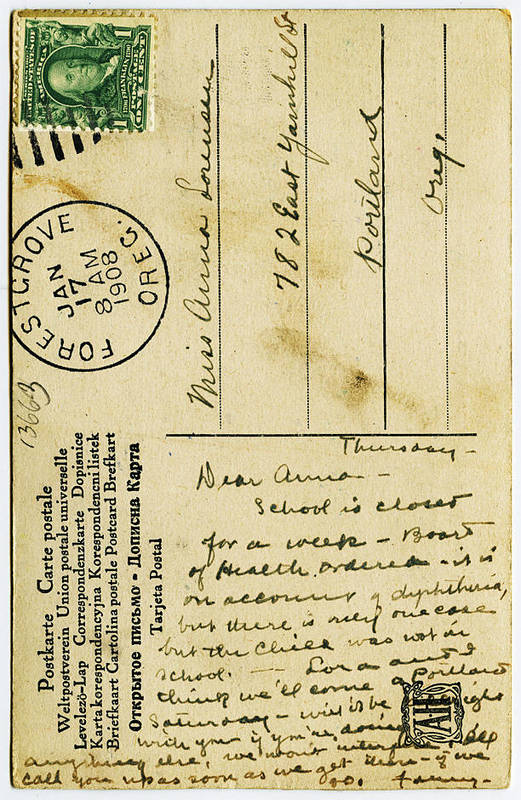 UNITED STATES OF AMERICA
FRANKLIN
POSTAGE
ONE CENT
FORESTGROVE
JAN
17
8 AM
1908
OREG.
Miss Anna Sorensen
782 East Yamhill St
Portland
Org.
13663
Postkarte Carte postale
Weltpostverein Union postale universelle
Levelezö-Lap Correspondenzkarte Dopisnice
Karta korespondencyjna Korespondencni listek
Briefkaart Cartolina postale Postcard Brefkart
Открытое письмо - Дописна Карта
Tarjeta Postal
Thursday -
Dear Anna -
School is closed
for a week - Board
of Health ordered - it is
on account of diphtheria,
but there is only one case
but the child was not in
school. — and I
think we'll come to Portland
Saturday - will be night
with you if you're doing
anything else, we won't - Ill
call you up as soon as we get there - if we
go.